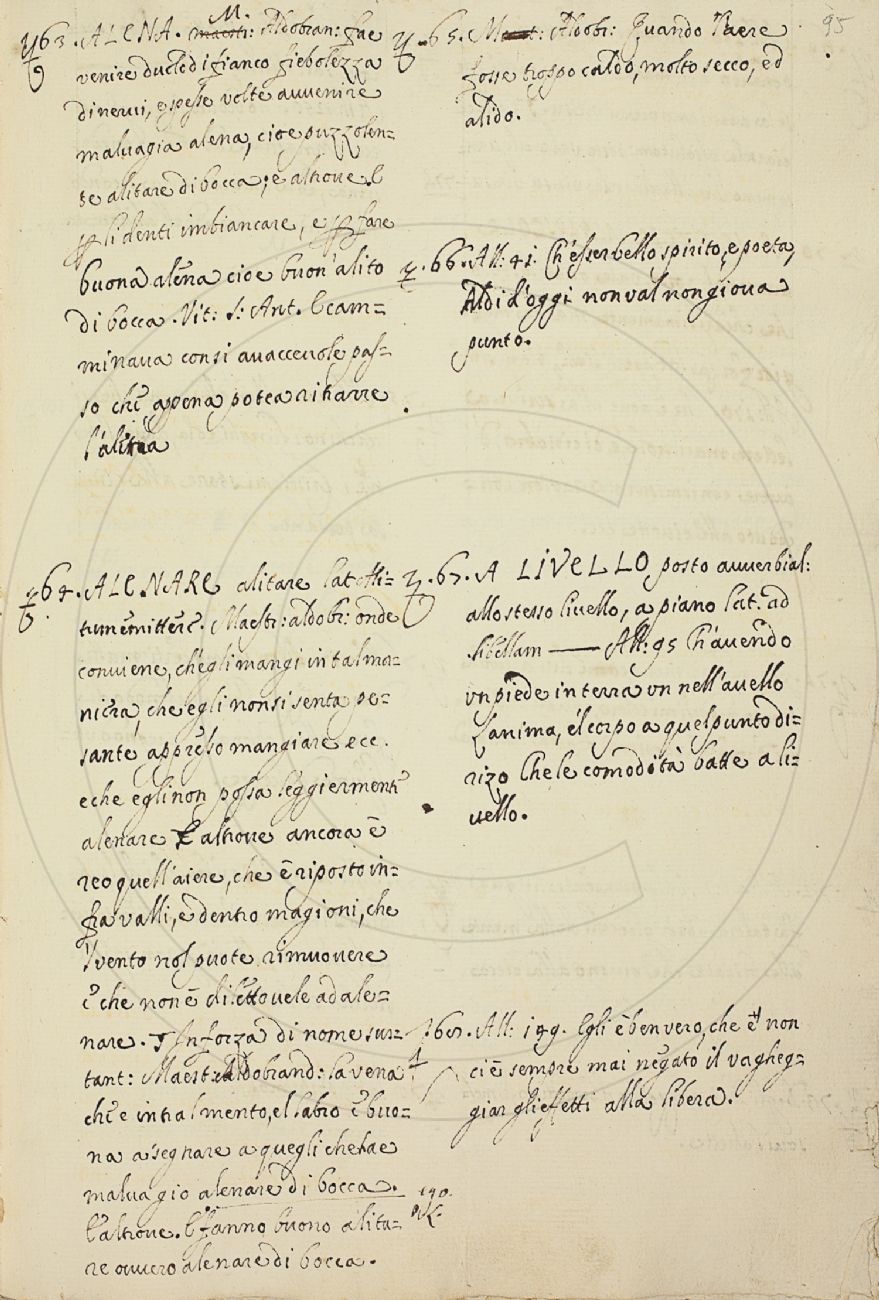 63. ALENA. M. Aldobran: fae
venire duole di fianco fiebolezza
di nervi, e spesse volte avvenire
malvagia alena, cioe puzzolen=
te alitare di bocca; e altrove. E
p li denti imbiancare, e p fare
buona alena cioe buon'alito
di bocca. Vit: S: Ant. E cam=
minava consi avaccevole pas=
so che apena potea ritrarre
l'alena
64. ALENARE alitare lat.
Maestr: aldobr: onde
conviene, ch'egli mangi in tal ma=
niera, che egli non si senta pe=
sante appresso mangiare ecc.
e che egli non possa leggierment
alenare E altrove ancora è
reo quell'aiere, che è riposto in=
fra valli, e dentro magioni, che
'l vento nol puote rimuovere
e che non è dilettovele ad ale=
nare. In forza di nome sus=
tant: Maest: Aldobrand: la vena
ch'è in tral mento, e'l labro è buo=
na a segnare a quegli che hae
malvagio alenare di bocca.
E altrove. E fanno buono alita=
re ovvero alenare di bocca.
190.
95
65. Maest: Aldobr: Quando l'aere
fosse troppo caldo, molto secco, ed
alido.
66. All: 41. Ch'esser bello spirito, e poeta,
Al di d'oggi non val non giova
punto.
67. A LIVELLO posto avverbial:
allo stesso livello, a piano Lat. ad
libellam —— All: 95 Ch'avendo
un piede in terra un nell'avello
L'anima, e'l corpo a quel punto di=
rizo Che le comodità batte a li=
vello.
68. All: 199. Egli è ben vero, che e' non
ci è sempre mai negato il vagheg=
giar gli effetti alla libera.